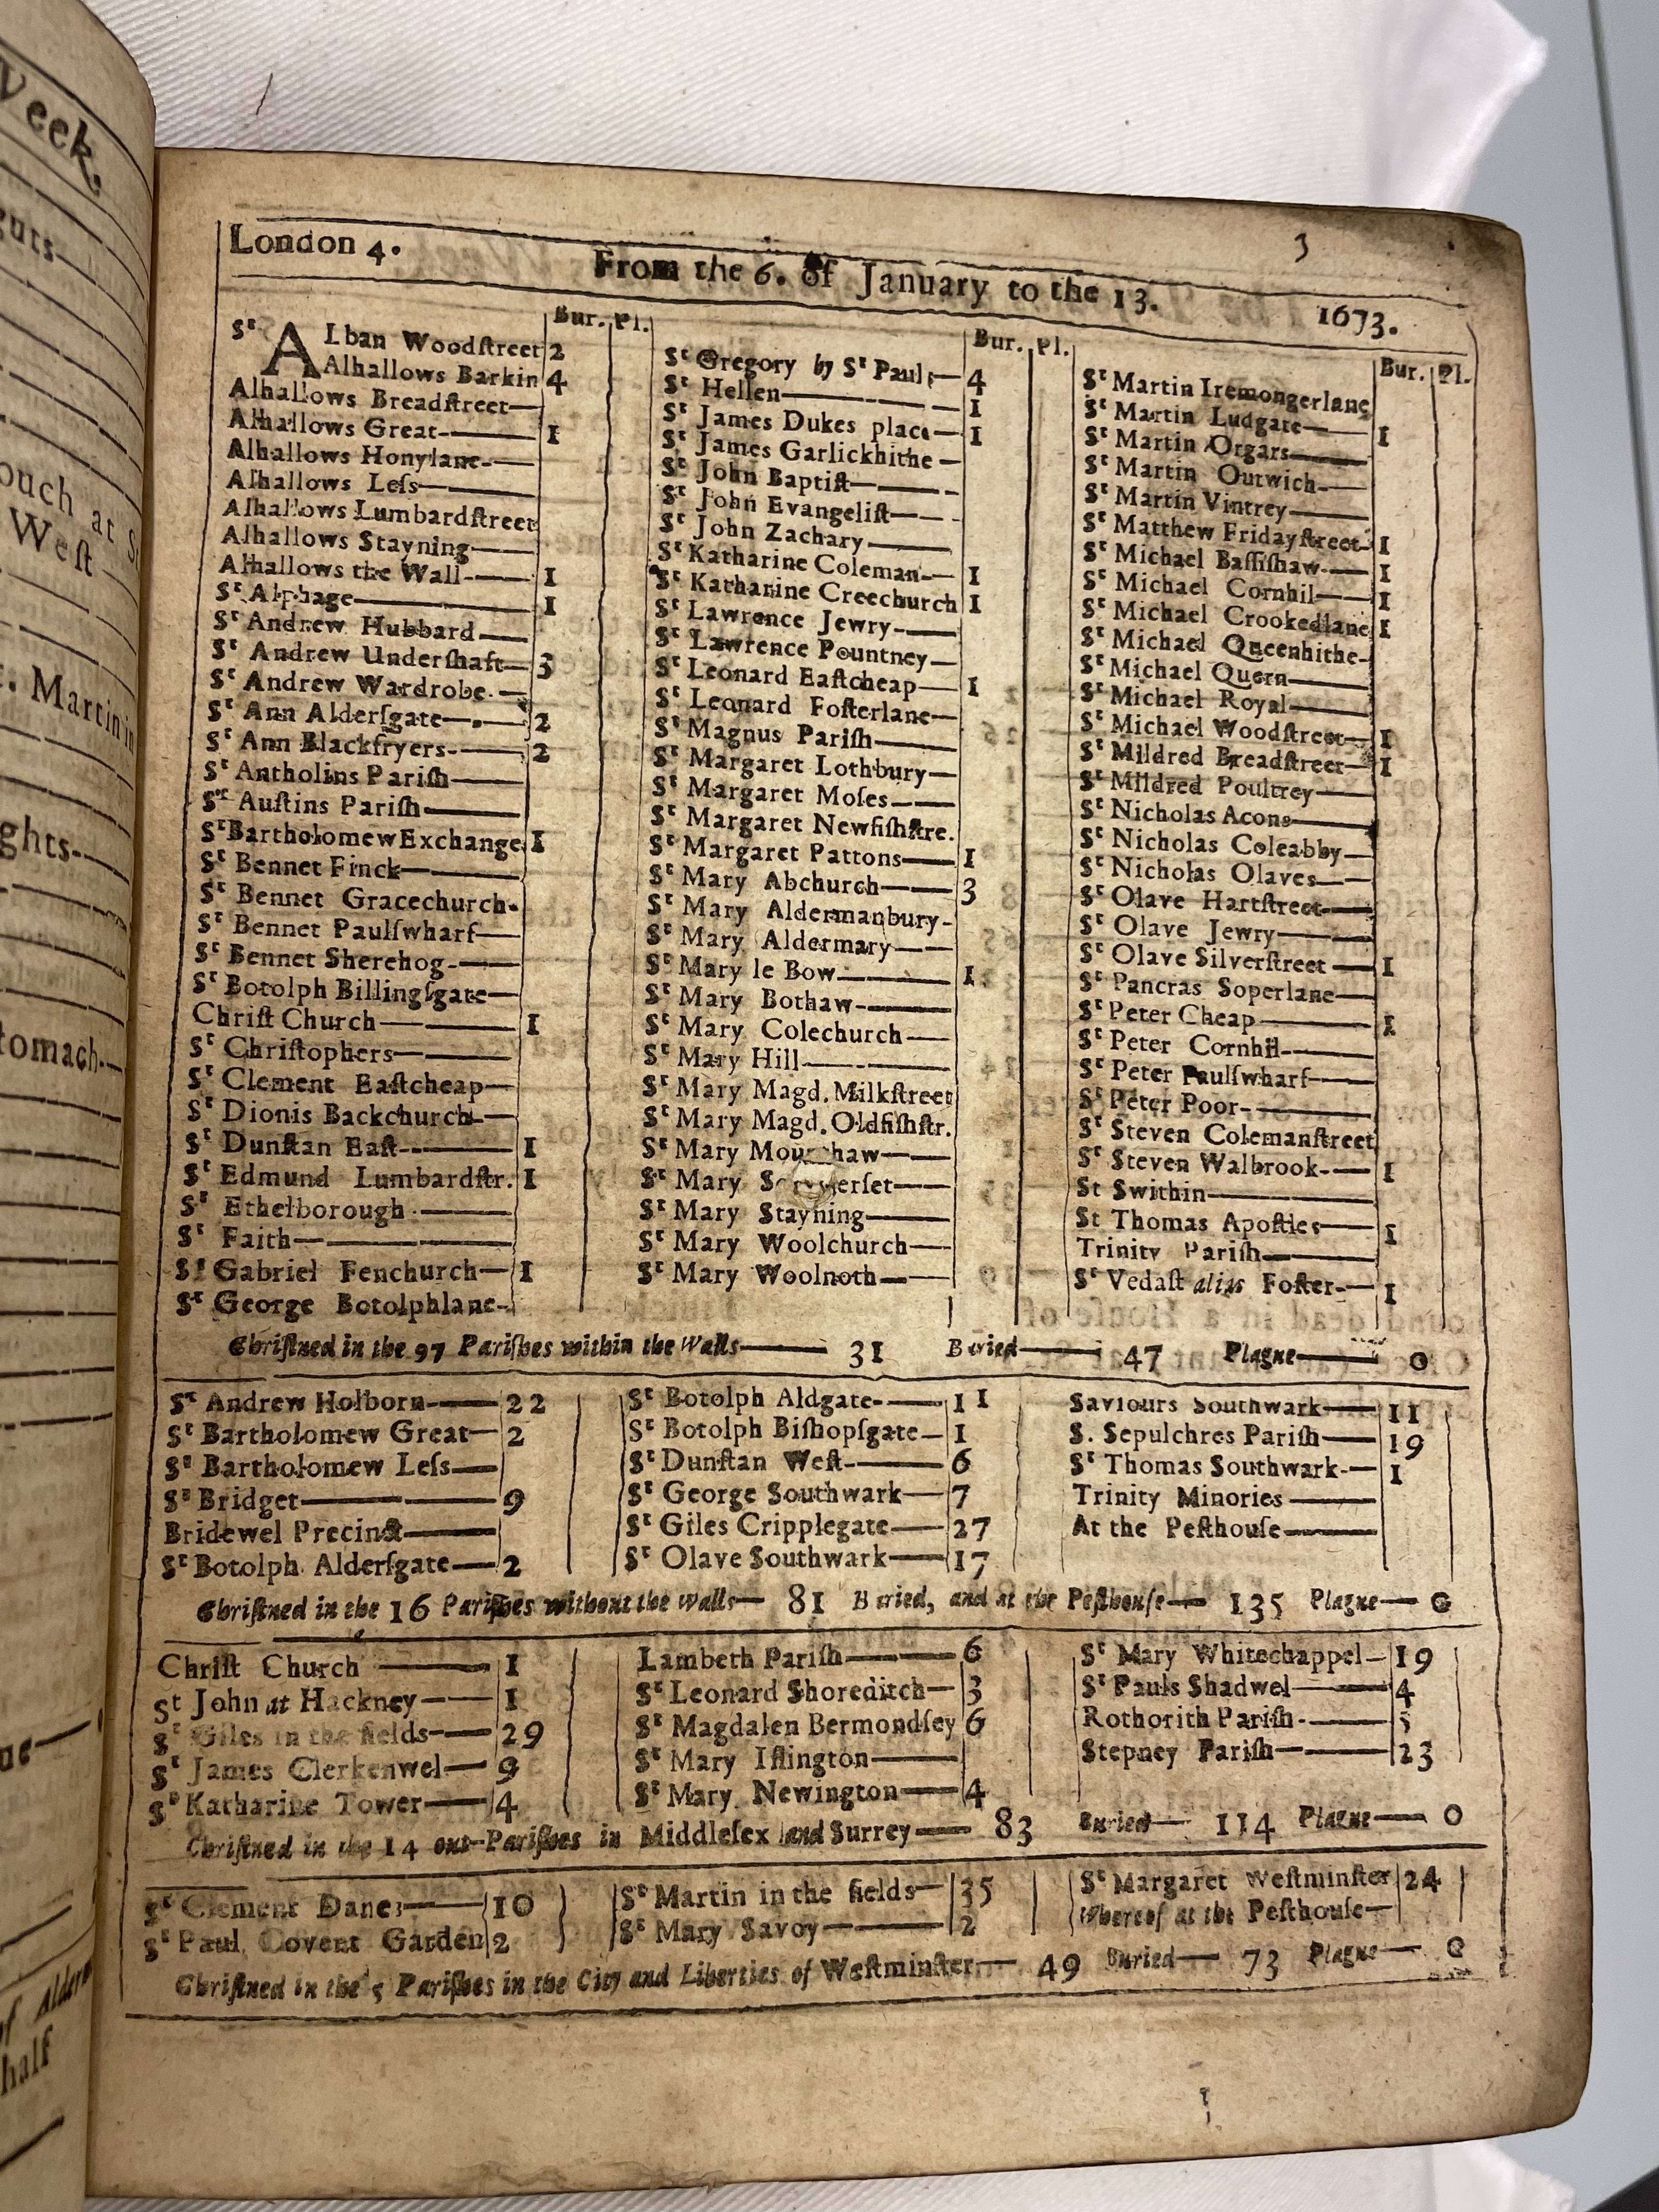 Week,
guts
ouch at S
West
t. Martin in
ghts
tomach
of Alder
half
3
London 4. From the 6. of January to the 13. 1673.
Bur. Pl.
Sᵗ ALban Woodſtreet 2
Alhallows Barkin 4
Alhallows Breadſtreet
Alhallows Great 1
Alhallows Honylane
Alhallows Leſs
Alhallows Lumbardſtreet
Alhallows Stayning
Alhallows the Wall 1
Sᵗ Alphage 1
Sᵗ Andrew Hubbard
Sᵗ Andrew Underſhaft 3
Sᵗ Andrew Wardrobe
Sᵗ Ann Alderſgate 2
Sᵗ Ann Blackfryers 2
Sᵗ Antholins Pariſh
Sᵗ Auſtins Pariſh
Sᵗ Bartholomew Exchange 1
Sᵗ Bennet Finck
Sᵗ Bennet Gracechurch
Sᵗ Bennet Paulſwharf
Sᵗ Bennet Sherehog
Sᵗ Botolph Billingſgate
Chriſt Church 1
Sᵗ Chriſtophers
Sᵗ Clement Eaſtcheap
Sᵗ Dionis Backchurch
Sᵗ Dunſtan Eaſt 1
Sᵗ Edmund Lumbardſtr. 1
Sᵗ Ethelborough
Sᵗ Faith
Sᵗ Gabriel Fenchurch 1
Sᵗ George Botolphlane
Bur. Pl.
Sᵗ Gregory by Sᵗ Pauls 4
Sᵗ Hellen 1
Sᵗ James Dukes place 1
Sᵗ James Garlickhithe
Sᵗ John Baptiſt
Sᵗ John Evangeliſt
Sᵗ John Zachary
Sᵗ Katharine Coleman 1
Sᵗ Katharine Creechurch 1
Sᵗ Lawrence Jewry
Sᵗ Lawrence Pountney
Sᵗ Leonard Eaſtcheap 1
Sᵗ Leonard Foſterlane
Sᵗ Magnus Pariſh
Sᵗ Margaret Lothbury
Sᵗ Margaret Moſes
Sᵗ Margaret Newfiſhſtre.
Sᵗ Margaret Pattons 1
Sᵗ Mary Abchurch 3
Sᵗ Mary Aldermanbury
Sᵗ Mary Aldermary
Sᵗ Mary le Bow 1
Sᵗ Mary Bothaw
Sᵗ Mary Colechurch
Sᵗ Mary Hill
Sᵗ Mary Magd. Milkſtreet
Sᵗ Mary Magd. Oldfiſhſtr.
Sᵗ Mary
Sᵗ Mary
Sᵗ Mary Stayning
Sᵗ Mary Woolchurch
Sᵗ Mary Woolnoth
Bur. Pl.
Sᵗ Martin Iremongerlane
Sᵗ Martin Ludgate 1
Sᵗ Martin Orgars
Sᵗ Martin Outwich
Sᵗ Martin Vintrey
Sᵗ Matthew Fridayſtreet 1
Sᵗ Michael Baſſiſhaw 1
Sᵗ Michael Cornhil 1
Sᵗ Michael Crookedlane 1
Sᵗ Michael Queenhithe
Sᵗ Michael Quern
Sᵗ Michael Royal
Sᵗ Michael Woodſtreet 1
Sᵗ Mildred Breadſtreet 1
Sᵗ Mildred Poultrey
Sᵗ Nicholas Acons
Sᵗ Nicholas Coleabby
Sᵗ Nicholas Olaves
Sᵗ Olave Hartſtreet
Sᵗ Olave Jewry
Sᵗ Olave Silverſtreet 1
Sᵗ Pancras Soperlane
Sᵗ Peter Cheap 1
Sᵗ Peter Cornhil
Sᵗ Peter Paulſwharf
Sᵗ Peter Poor
Sᵗ Steven Colemanſtreet
Sᵗ Steven Walbrook 1
St Swithin
St Thomas Apoſtles 1
Trinity Pariſh
Sᵗ Vedaſt alias Foſter 1
Chriſtned in the 97 Pariſhes within the Walls 31 Buried 47 Plague 0
Sᵗ Andrew Holborn 22
Sᵗ Bartholomew Great 2
Sᵗ Bartholomew Leſs
Sᵗ Bridget 9
Bridewel Precinct
Sᵗ Botolph Alderſgate 2
Sᵗ Botolph Aldgate 11
Sᵗ Botolph Biſhopſgate 1
Sᵗ Dunſtan Weſt 6
Sᵗ George Southwark 7
Sᵗ Giles Cripplegate 27
Sᵗ Olave Southwark 17
Saviours Southwark 11
S. Sepulchres Pariſh 19
Sᵗ Thomas Southwark 1
Trinity Minories
At the Peſthouſe
Chriſtned in the 16 Pariſhes without the Walls 81 Buried, and at the Peſthouſe 135 Plague 0
Chriſt Church 1
St John at Hackney 1
Sᵗ Giles in the fields 29
Sᵗ James Clerkenwel 9
Sᵗ Katharine Tower 4
Lambeth Pariſh 6
Sᵗ Leonard Shoreditch 3
Sᵗ Magdalen Bermondſey 6
Sᵗ Mary Iſlington
Sᵗ Mary Newington 4
Sᵗ Mary Whitechappel 19
Sᵗ Pauls Shadwel 4
Rothorith Pariſh 5
Stepney Pariſh 23
Chriſtned in the 14 out-Pariſhes in Middleſex and Surrey 83 Buried 114 Plague 0
Sᵗ Clement Danes 10
Sᵗ Paul Covent Garden 2
Sᵗ Martin in the fields 35
Sᵗ Mary Savoy 2
Sᵗ Margaret Weſtminſter 24
Whereof at the Peſthouſe
Chriſtned in the 5 Pariſhes in the City and Liberties of Weſtminſter 49 Buried 73 Plague 0